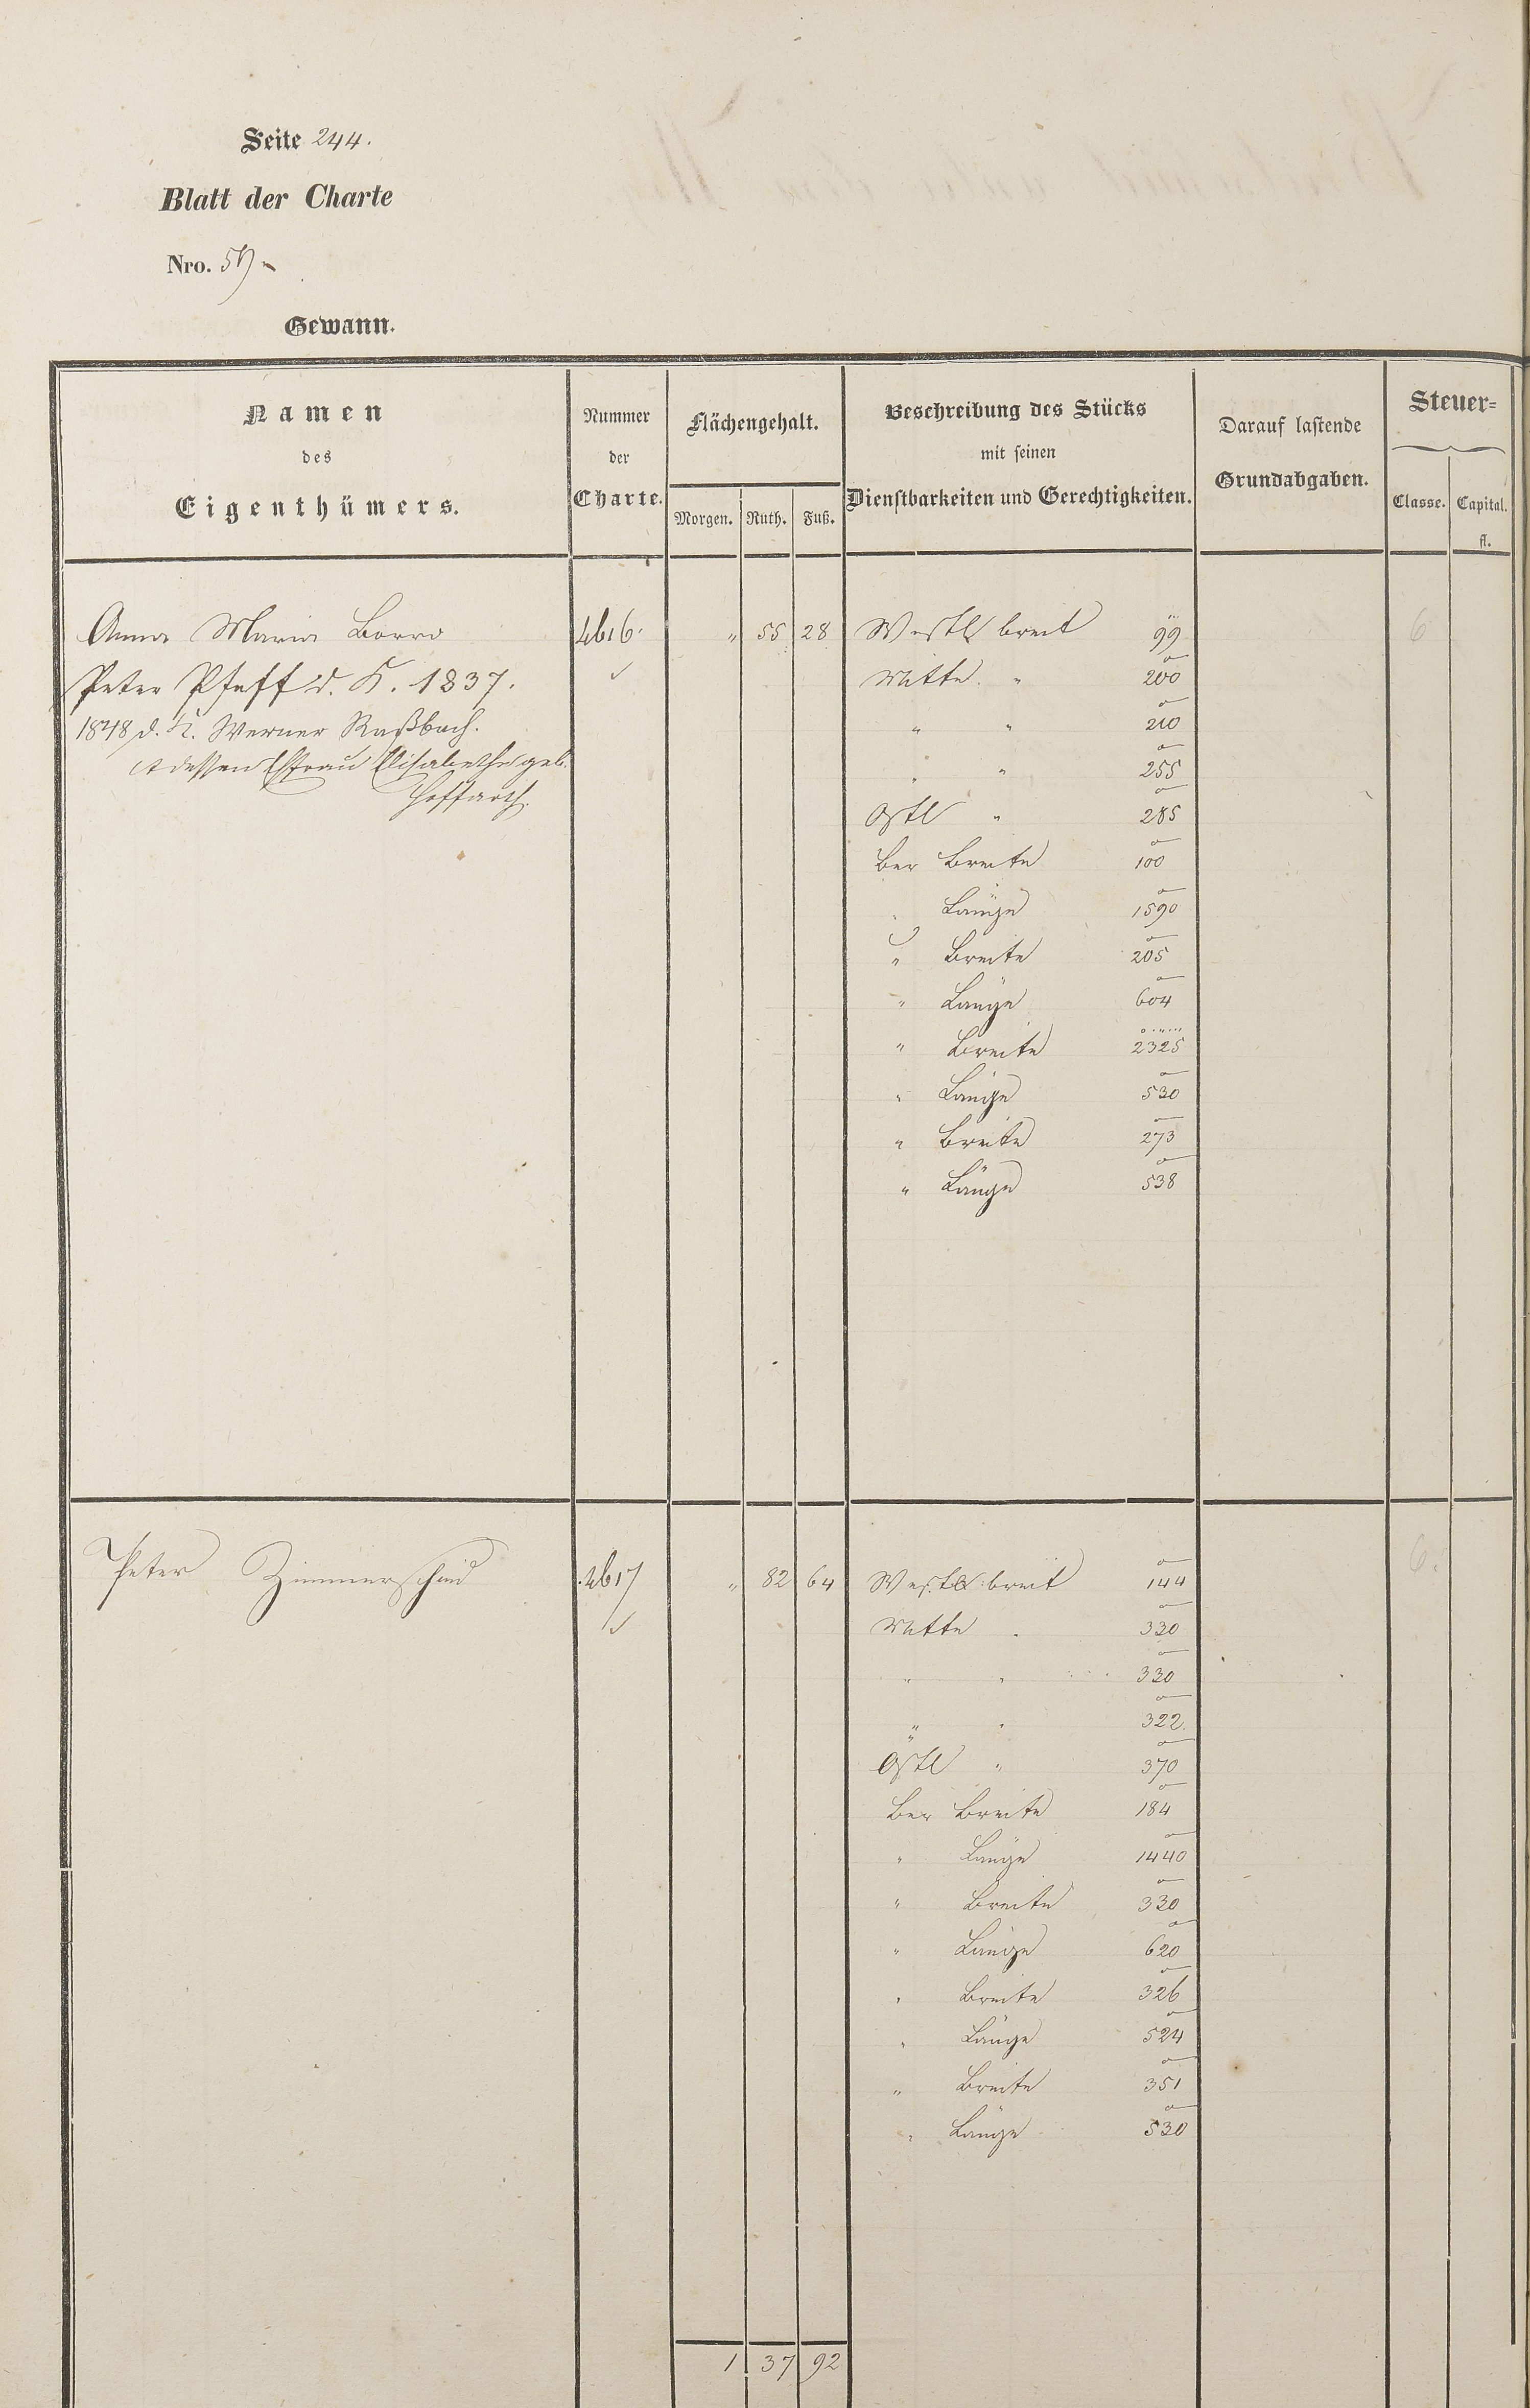 Seite 244.
Blatt der Charte
Nro. 59
Gewann.
Namen des Eigenthümers.
Nummer der Charte.
Flächengehalt.
Morgen. Ruth. Fuß.
Beschreibung des Stücks mit seinen Dienstbarkeiten und Gerechtigkeiten.
Darauf lastende Grundabgaben.
Steuer=
Classe. Capital. fl.
Anna Maria Borro 4616. " 55 28 Westl breit 99 6
Peter Pfaff d. K. 1837. Mitte. " 200
1848 d. K. Werner Raßbach. " " 210
dessen Ehfrau Elisabetha geb. " " 255
Hoffarth. Östl " 285
Ber Breite 100
" Länge 1590
" Breite 205
" Länge 604
" Breite 2325
" Länge 530
" Breite 273
" Länge 538
Peter Zimmerschied 4617 " 82 64 Westl breit 144 6.
Mitte " 330
" " 330
" " 322
Östl " 370
Ber Breite 184
" Länge 1440
" Breite 330
" Länge 620
" Breite 326
" Länge 524
" Breite 351
" Länge 530
1 37 92